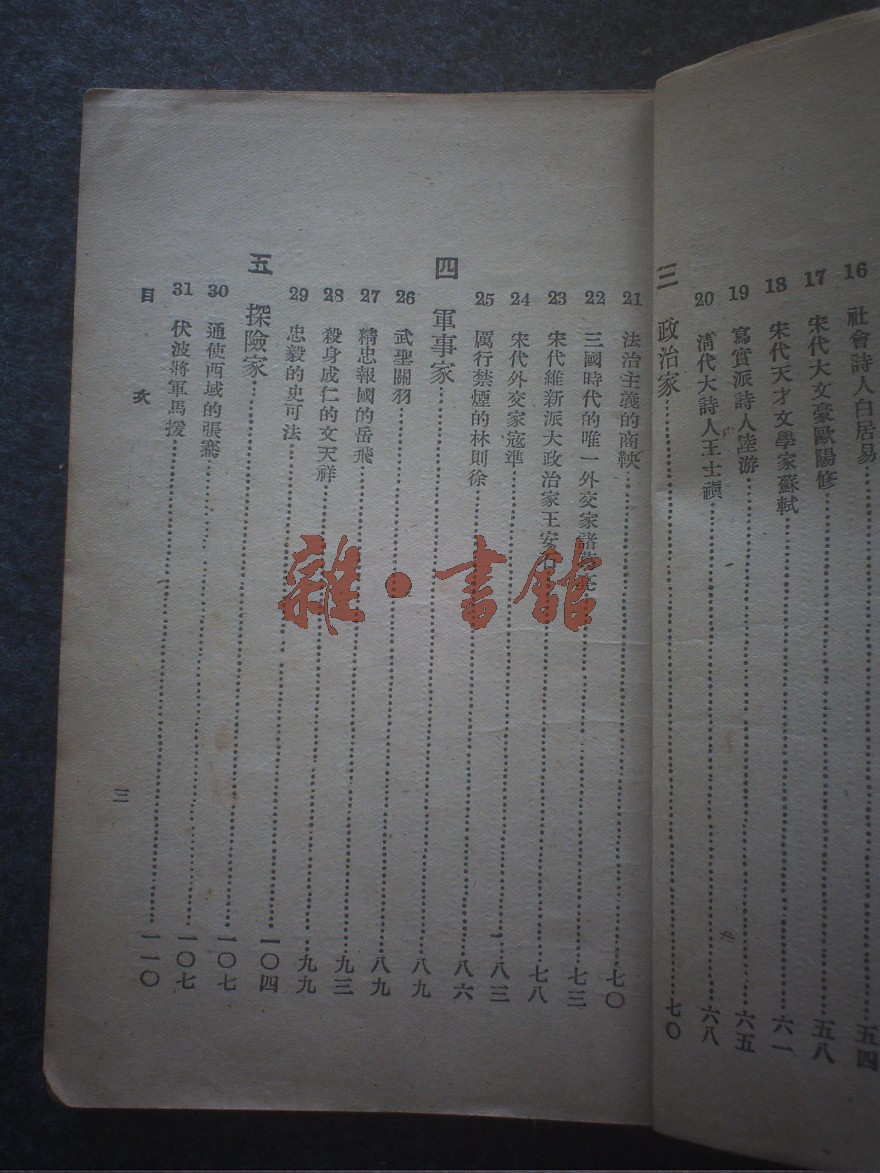 16 社會詩人白居易……五四
17 宋代大文豪歐陽修……五八
18 宋代天才文學家蘇軾……六一
19 寫實派詩人陸游……六五
20 清代大詩人王士禎……六八
三 政治家……七〇
21 法治主義的商鞅……七〇
22 三國時代的唯一外交家諸葛亮……七三
23 宋代維新派大政治家王安石……七八
24 宋代外交家寇準……八三
25 厲行禁煙的林則徐……八六
四 軍事家……八九
26 武聖關羽……八九
27 精忠報國的岳飛……九三
28 殺身成仁的文天祥……九九
29 忠毅的史可法……一〇四
五 探險家……一〇七
30 通使西域的張騫……一〇七
31 伏波將軍馬援……一一〇
目次
三
雜·書館